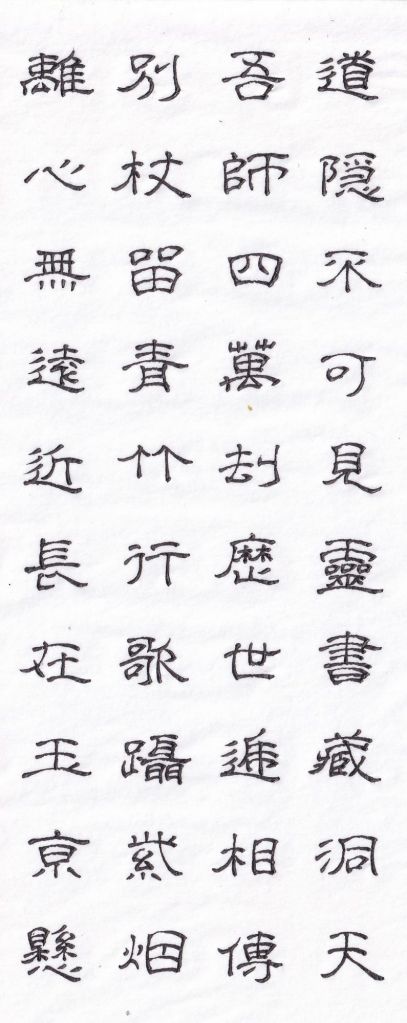 道隱不可見靈書藏洞天
吾師四萬刦歷世遞相傳
別杖留青竹行歌躡紫烟
離心無遠近長在玉京懸